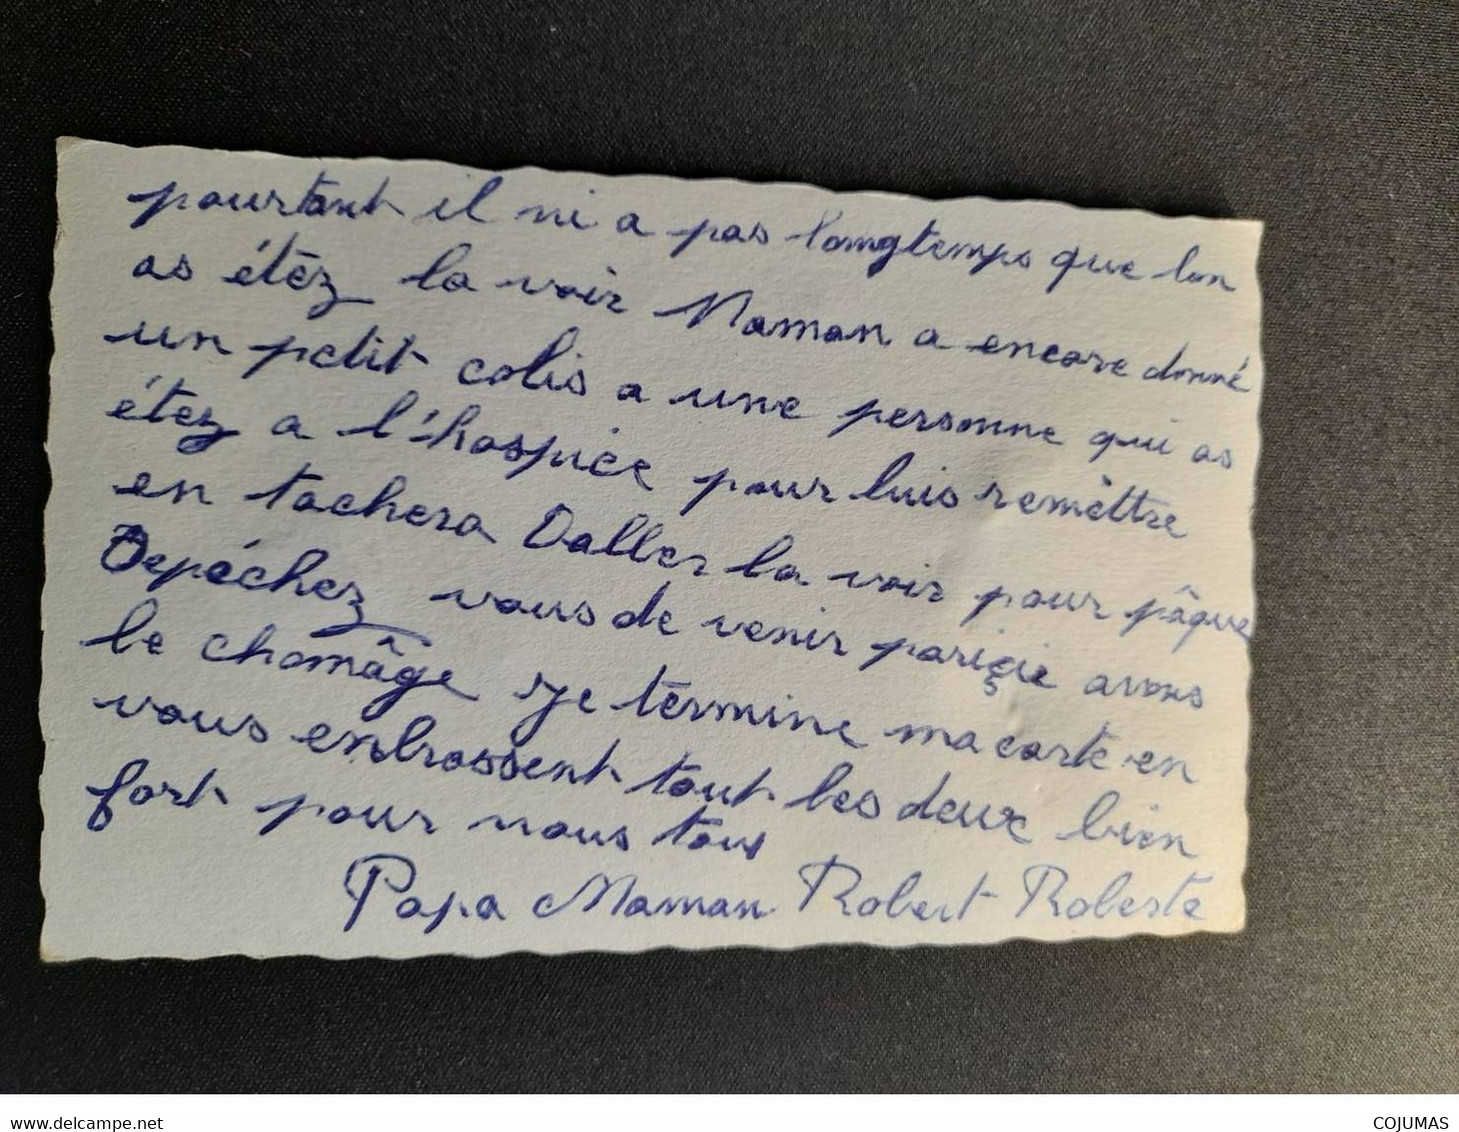 pourtant il ni a pas longtemps que lon
as étéz la voir Maman a encore donné
un petit colis a une personne qui as
étez a l'hospice pour luis remèttre
en tachera Daller la voir pour pâque
Depéchez vous de venir pariçie avons
le chomâge Je términe ma carte en
vous enbrassent tout les deux bien
fort pour nous tous
Papa Maman Robert Roberte
www.delcampe.net
COJUMAS